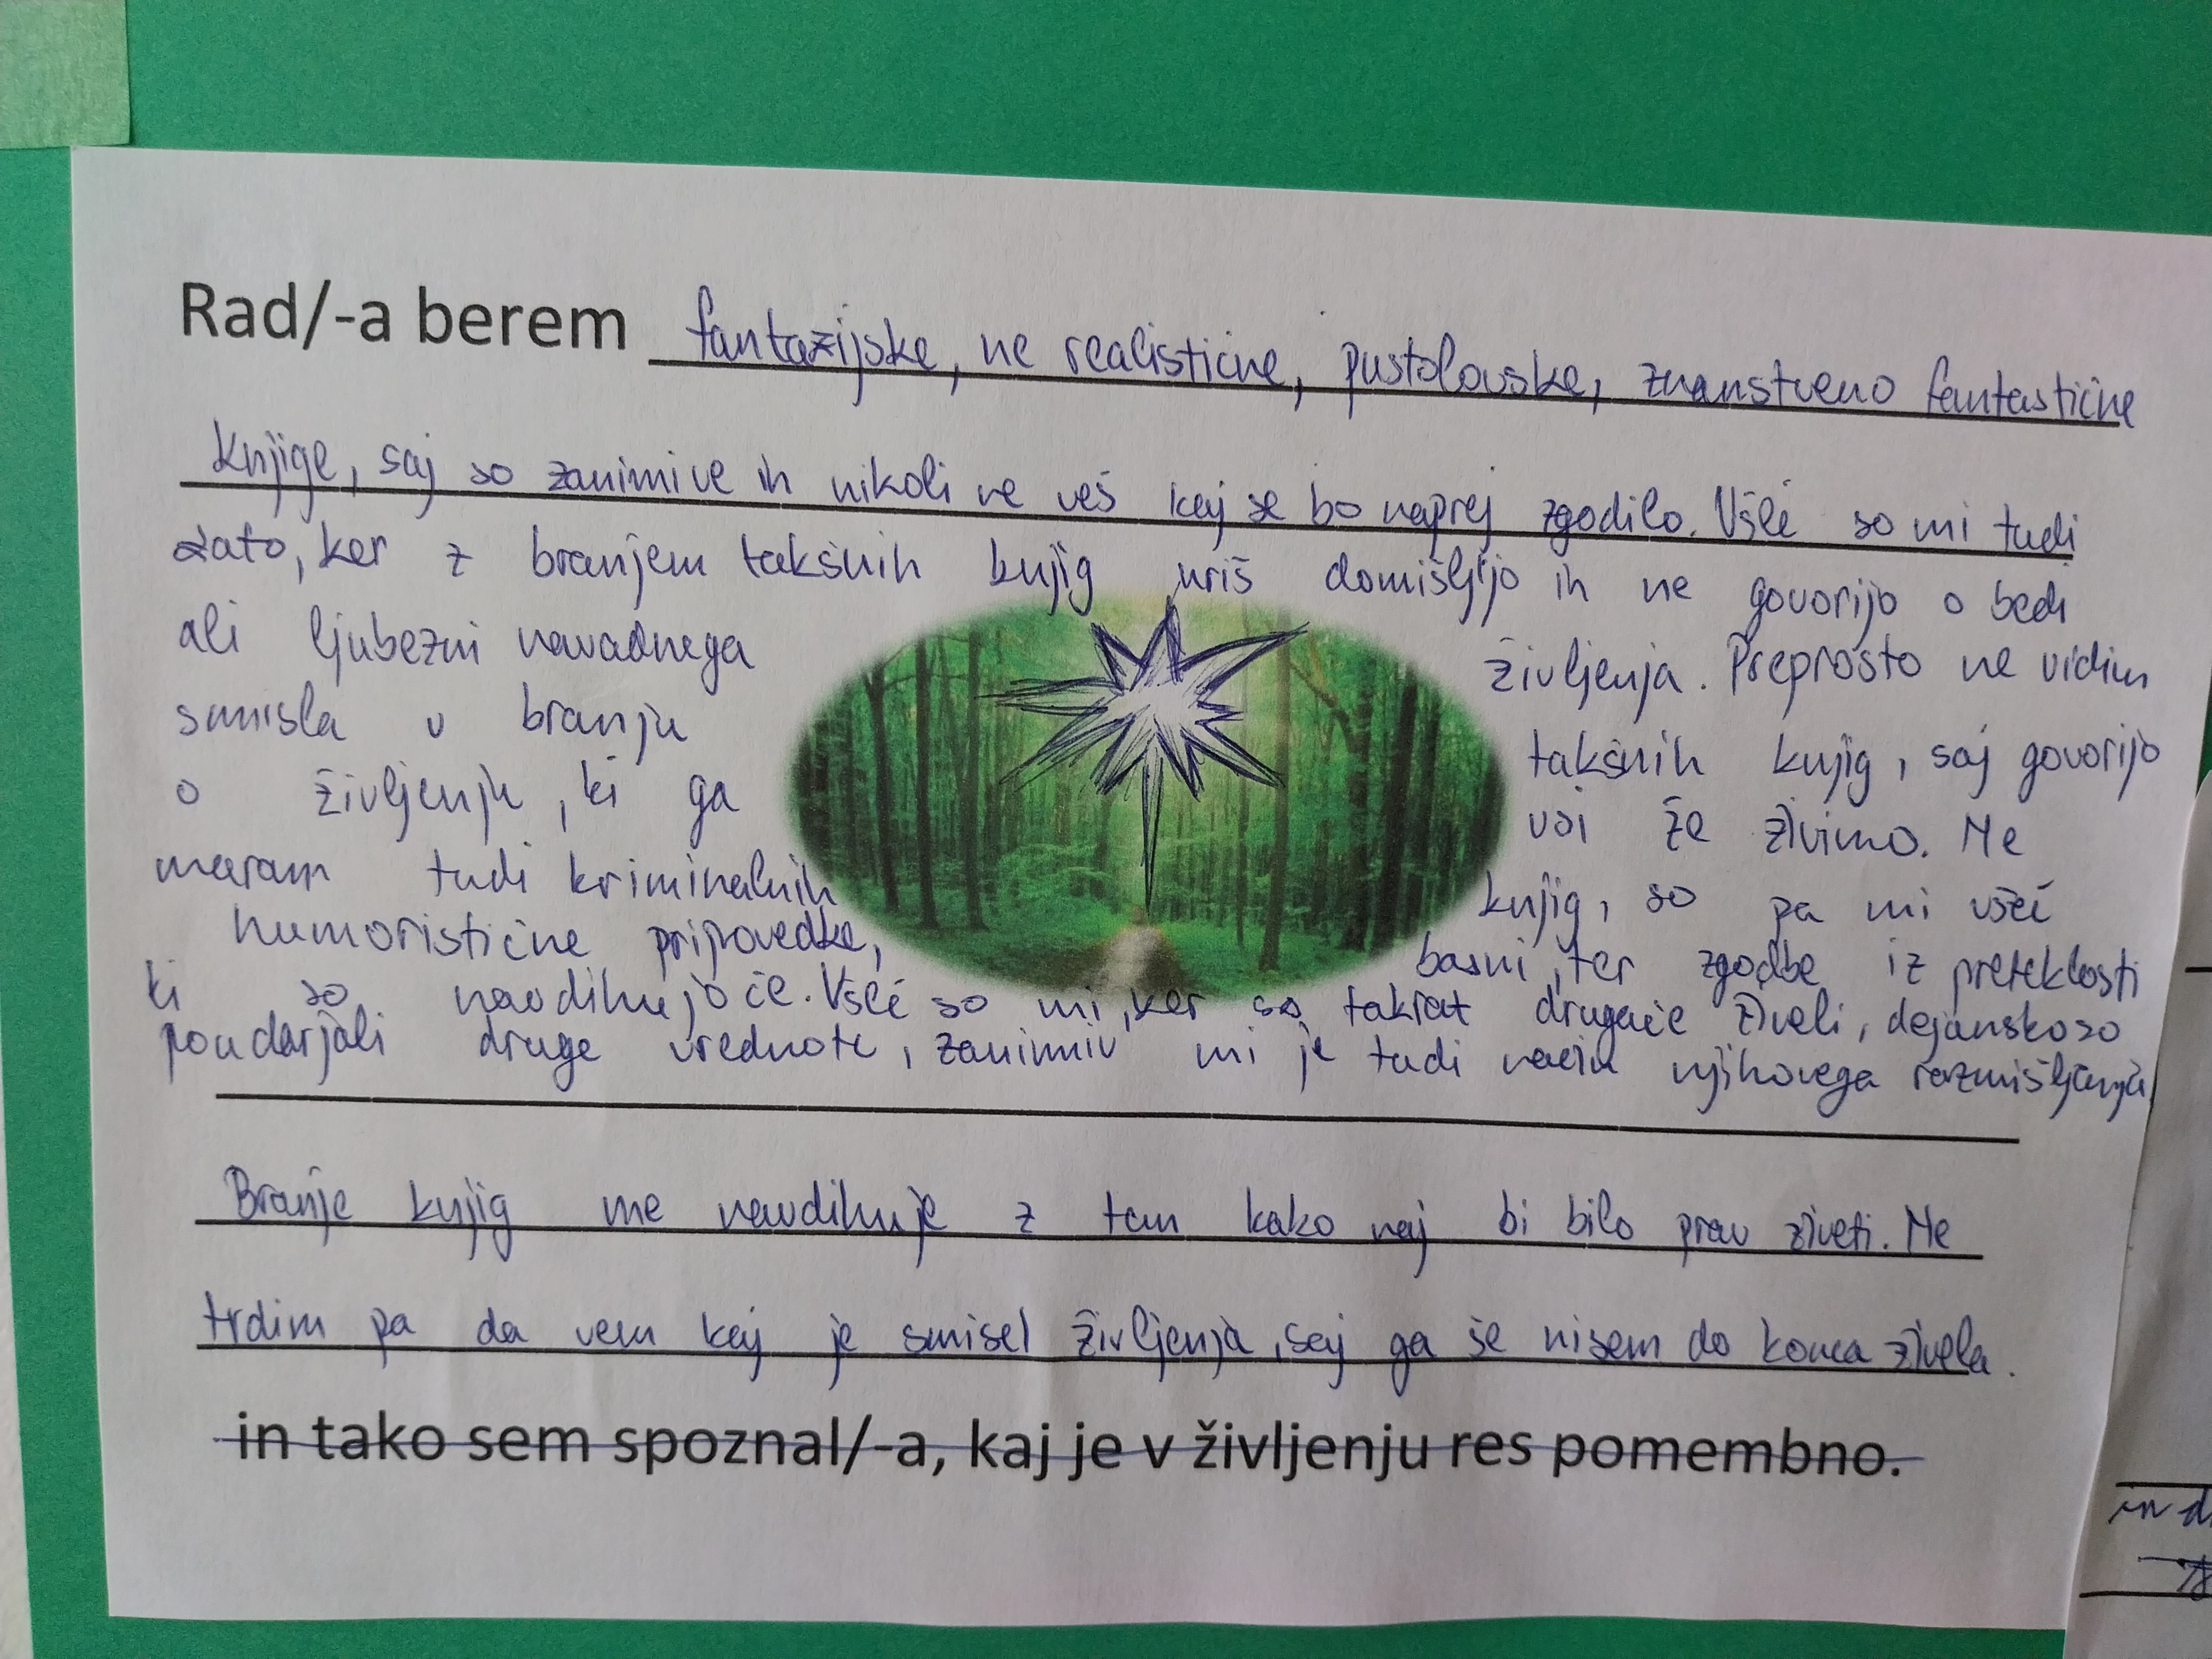 Rad/-a berem fantazijske, ne realistične, pustolovske, znanstveno fantastične
knjige, saj so zanimive in nikoli ne veš kaj se bo naprej zgodilo. Všeč so mi tudi
zato, ker z branjem takšnih knjig uriš domišljijo in ne govorijo o bedi
ali ljubezni navadnega življenja. Preprosto ne vidim
smisla v branju takšnih knjig, saj govorijo
o življenju, ki ga vsi že živimo. Ne
maram tudi kriminalnih knjig, so pa mi všeč
humoristične pripovedke, basni, ter zgodbe iz preteklosti
ki so navdihujoče. Všeč so mi, ker so takrat drugače živeli, dejansko so
poudarjali druge vrednote, zanimiv mi je tudi način njihovega razmišljanja
Branje knjig me navdihuje z tem kako naj bi bilo prav živeti. Ne
trdim pa da vem kaj je smisel življenja, saj ga še nisem do konca živela.
in tako sem spoznal/-a, kaj je v življenju res pomembno.
in d